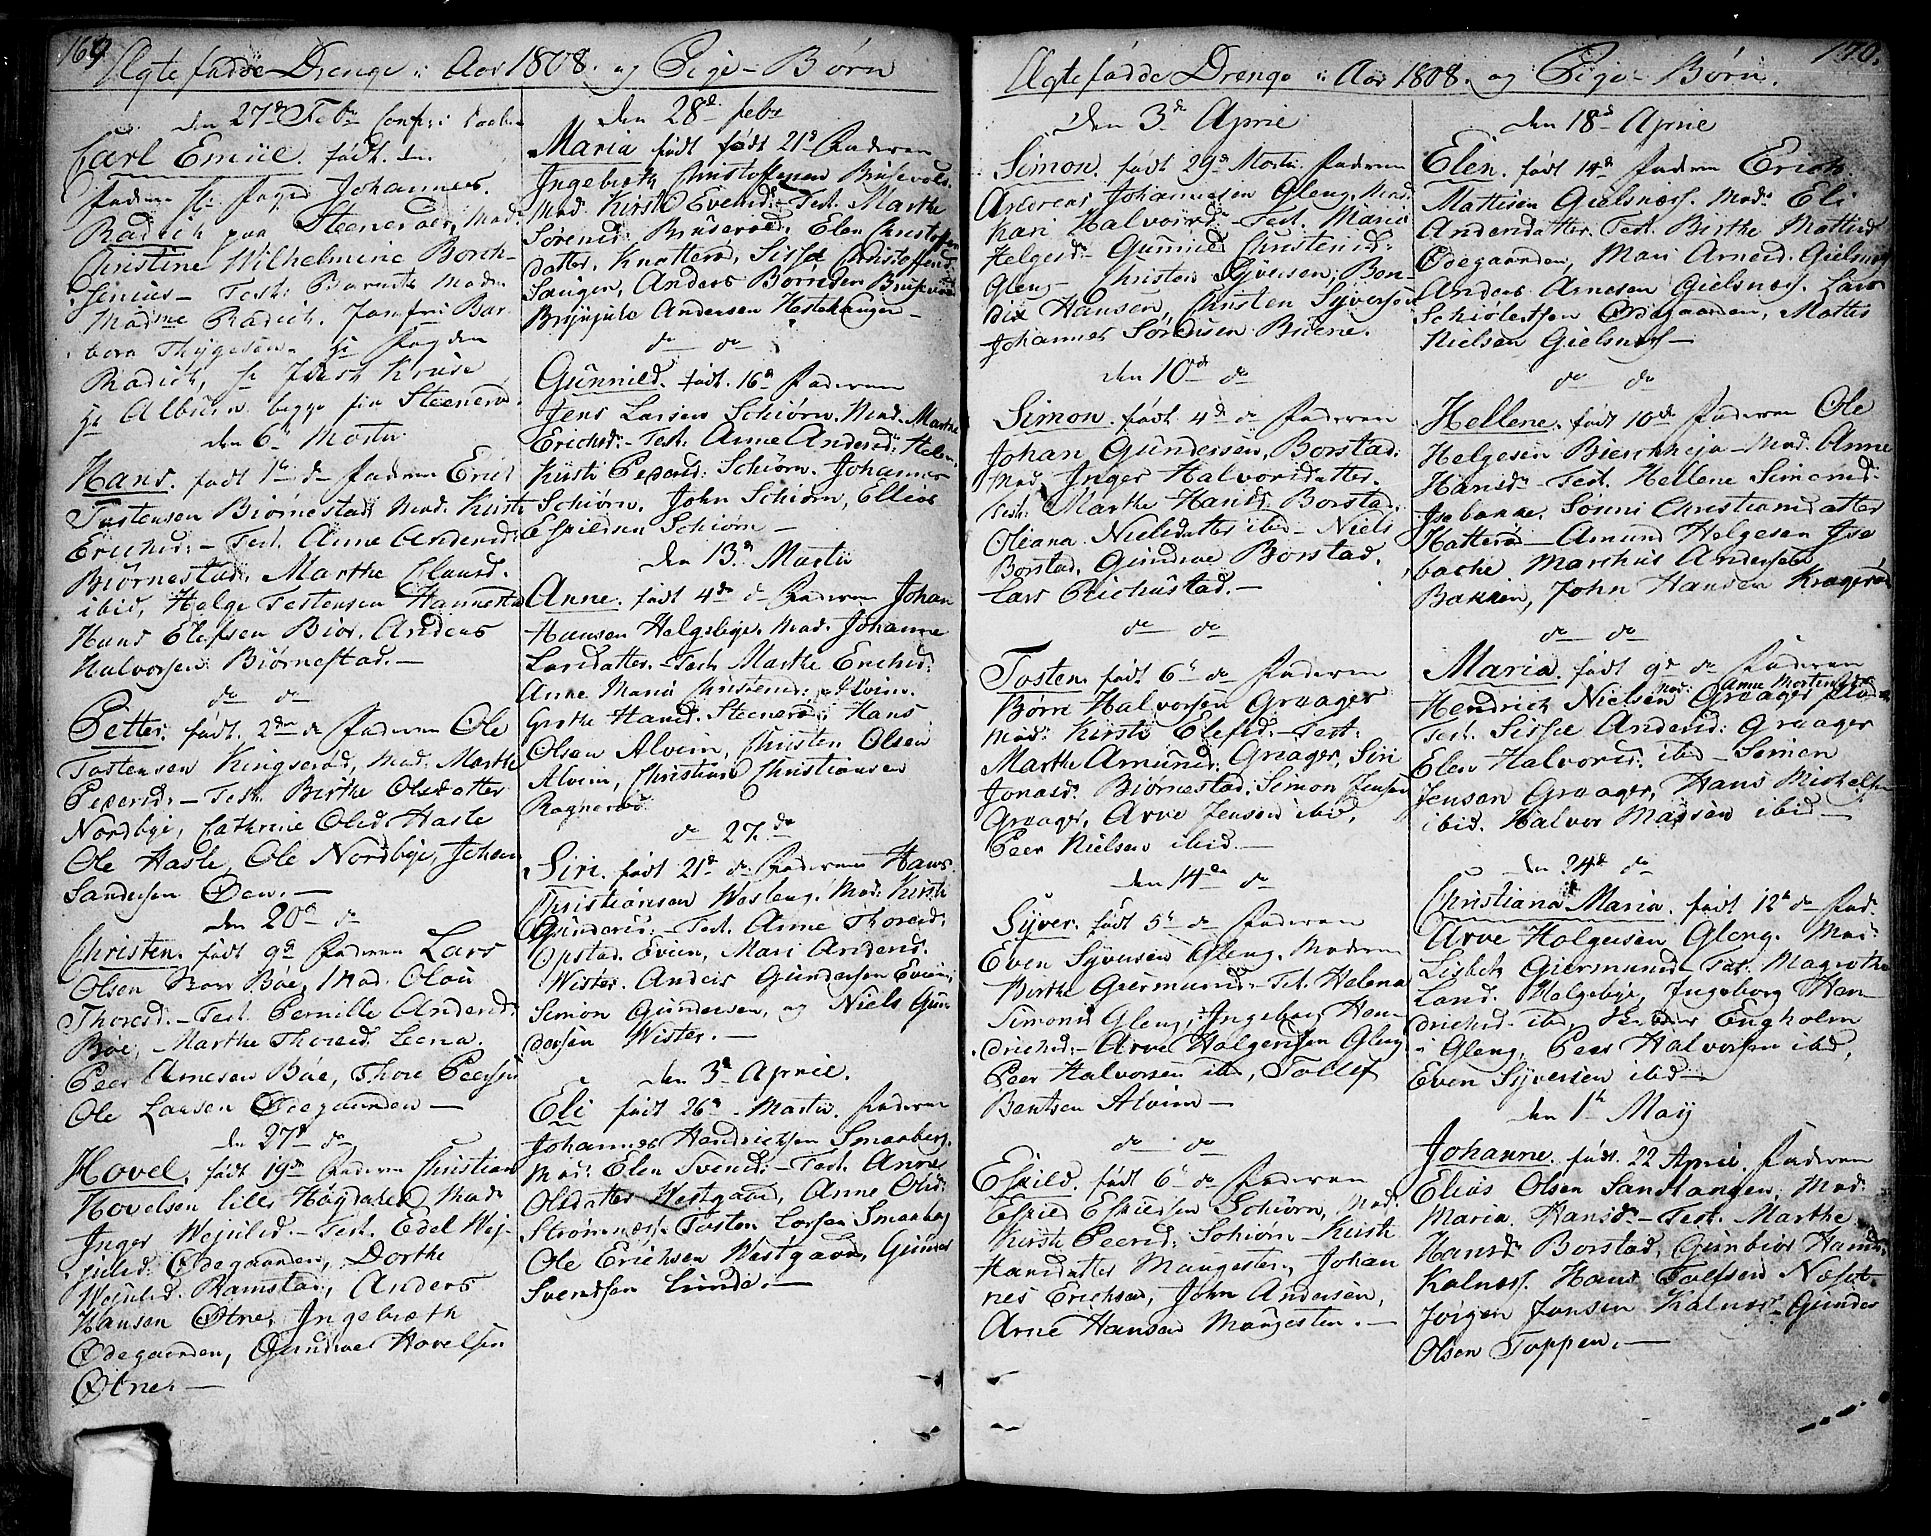 169
Ægte fødde Drenge i Aar 1808. og Pige-Børn
den 27de Feb. Conf: i Daaben
Carl Emiil. født. den
Faderen Hr. Foged Johannes
Radich paa Steneröe, Mod:
Christine Wilhelmine Borch-
senius - Test: Barnets Moder
Madme Radich, Jomfru Bar-
bora Thÿgesen. Hr Fogden
Radich, Hr Kruse
Hr Albun begge fra Steneröe.
den 6te Martii
Hans. født 1ste do Faderen Erich
Tostensen Biørnestad, Mod. Kirsti
Erichsd: - Test. Anne Andersd:
Biørnestad, Marthe Clausd.
ibid, Helge Tostensen Hannestad
Hans Elefsen Bior. Anders
Halvorsen Biørnestad. -
do do
Petter. født. 2den do Faderen Ole
Tostensen Kingerød, Mod: Marthe
Pedersd: - Test. Birthe Olsdatter
Nordbye, Cathrine Olsd. Hasle
Ole Hasle, Ole Nordbye, Johan
Sandersen Øen. -
den 20de do
Christen. født 9de Faderen Lars
Olsen Boe, Mod. Olou
Thoresd: - Test Pernille Andersd:
Böe, Marthe Thoresd. Leena.
Peer Arnesen Böe, Thore Peersen
Ole Larsen Ödegaarden -
den 27de do
Hovel. født 19de Faderen Christian
Hovelsen lille Høgdahl, Mod:
Inger Wejulsd. - Test. Edel Wej-
julsd. Ödegaarden, Dorthe
Wejulsd. Ramstad, Anders
Hansen Øtne, Ingebreth
Ödegaarden, Gundne Hovelsen
Øtne. -
den 28de feb.
Maria født født 21de Faderen
Ingebreth Christoffersen Brüsevold.
Mod. Kirsti Evensd: - Test. Marthe
Sørensd: Brüseröd, Elen Christoffer
datter. Knatteröd, Sisse Christoffersd:
Saugen, Anders Börresen Brusevold
Brynjule Andersen Hestehangen -
do do
Günnild. født. 16de Faderen
Jens Larsen Schiørn. Mod. Marthe
Erichsd: - Test. Anne Andersd: Holm,
Kirsti Pedersd: Schiörn. Johannes
Schiørn, John Schiørn, Ellens
Eskildsen Schiørn -
den 13de Martii
Anne. født 4de do Faderen Johan
Hansen Helgebye, Mod: Johanne
Larsdatter. - Test Marthe Erichsd:
Anne Maria Christensd: Alvim.
Grethe Hansd. Steenerød: Hans
Olsen Alvim, Christen Olsen
Alvim, Christian Christiansen
Ragneröd.
do 27. do
Siri. født 21de do Faderen Hans
Christiansen Wasleng. Mod: Kirsti
Gündersd: - Test. Anne Thoresd:
Opstad. Even, Mari Andersd.
Wister. Anders Gundersen Even,
Simon Gundersen, og Niels Gün
dersen Wister. -
den 3de April.
Eli født 26de - Martii. Faderen
Johannes Hendrichsen Smaaberg,
Mod: Elen Svensd: - Test. Anne
Olsdatter Westgaard, Anne Olsd:
Strömnæss. Tosten Larsen Smaaberg
Ole Erichsen Westgaard, Günner
Svendsen Lunde. -
170.
Ægte fødde Drenge i Aar 1808. og Pige-Børn.
Den 3de Aprie
Simon. født 29de Martii. Faderen
Andreas Johannesen Gleng. Mod.
Kari Halvorsd - Test. Maria
Helgesd Gunnild Christensd:
Gleng - Christen Syversen, Ben-
dix Hansen, Christen Syversen
Johannes Sörensen Buene.
den 10de do
Simon. født 4de do Faderen
Johan Gundersen, Borstad.
Mod, Inger Halvorsdatter.
Test: Marthe Hansd. Borstad,
Oliana Nielsdatter ibid - Niels
Borstad, Gundne Borstad,
Lars Richustad. -
do do
Tosten. født 6te do Faderen
Børn Halvorsen Graager
Mod: Kirsti Elefsd. - Test:
Marthe Amundsd. Graager, Siri
Jonasd: Biørnestad, Simon Jensen
Graager, Arve Jensen ibid,
Peer Nielsen ibid. -
den 14de do
Syver. født 5te do Faderen
Even Syversen Gleng. Moderen
Birthe Giermunds - Test. Helena
Simonsd Gleng, Ingebor Hen-
drichsd: - Arve Holgersen Gleng
Peer Halvorsen ibid, Tollef
Bentsen Alvim -
do do
Eskild. født 6te do Faderen
Eskild Eskildsen Schiørn, Mod:
Kirsti Peersd: Schiørn - Kirsti
Hansdatter Maugesten, Johan
nes Erichsen, John Andersen,
Arne Hansen Maugesten. -
den 18de Aprie
Elen. født 14de Faderen Erich
Mathisen Gielsnæss. Mod: Eli
Andersdatter. Test. Birthe Mattisd
Ödegaarden, Mari Arnesd. Gielsnæs
Anders Arnesen Gielsnæs. Lars
Schiølertsen Ödegaarden, Mattis
Nielsen Gielsnæs -
do do
Hellene. født 10de Faderen Ole
Helgesen Bierchheja - Mod. Anne
Hansd. Test. Hellene Simensd:
Isebakke. Sönni Christiansdatter
Hatterö - Amund Helgesen Ise
bache. Marchus Andersen
Bakken, John Hansen Krageröe
do do
Maria. født 9de do Faderen
Hendrich Nielsen Graager Mod: Anne Mortensd:
Test. Sisse Andersd. Graager
Elen Halvorsd. ibid - Simen
Jensen Graager, Hans Michelsen
ibid. Halvor Madsen ibid -
den 24de do
Christiana Maria. født 12te do Fad:
Arve Holgersen Gleng. Mod:
Lisbeth Giermunds - Test. Magrethe
Land. Holgebye, Ingeborg Hen-
drichsd. ibid, Engholm
i Gleng, Peer Halvorsen ibid,
Even Syversen ibid -
den 1te Maÿ
Johanne. født. 22 April. Faderen
Elias Olsen Sandtangen, Mod:
Maria Hansd. - Test. Marthe
Hansd: Borstad, Gunbior Hansd.
Kalnæss. Hans Tolfsen Næset.
Jörgen Jonsen Kalnæs - Gunder
Olsen Toppen. -